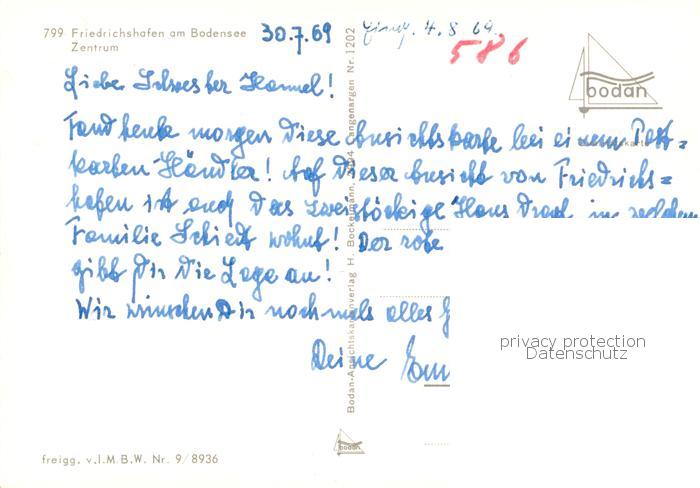 799 Friedrichshafen am Bodensee
Zentrum
30.7.69
4.8.69
586
bodan
Fand heute morgen diese Ansichtskarte bei einem Post=
karten Händler! Auf dieser Ansicht von Friedrichs=
hafen ist auch das zweistöckige Haus in welchem
Familie Schiedt wohnt! Der rote
gibt Dir die Lage an!
Wir wünschen Dir nochmals alles
Deine
Bodan-Ansichtskartenverlag H. Bockelmann, Langenargen Nr. 1202
privacy protection
Datenschutz
bodan
freigg. v.I.M.B.W. Nr. 9/8936